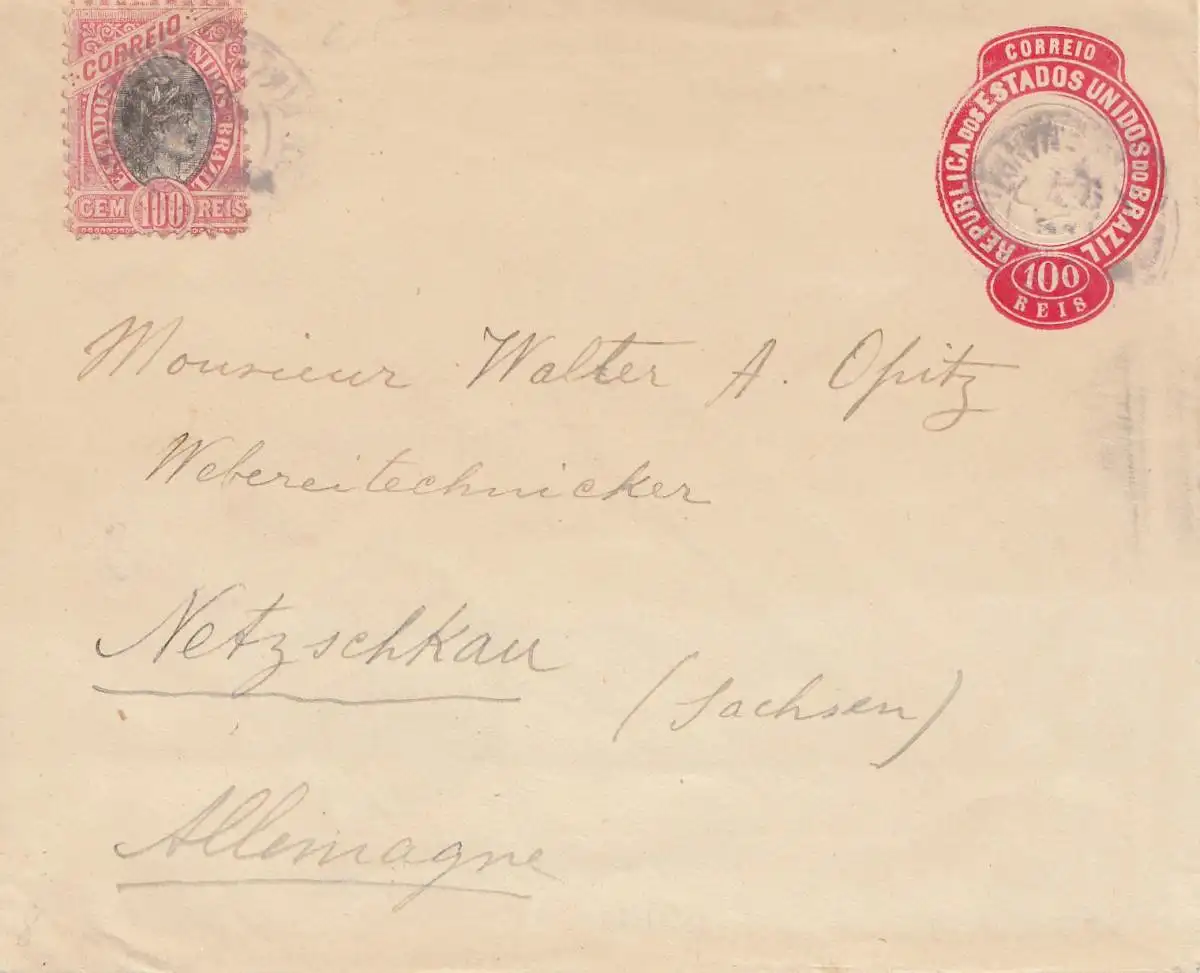 CORREIO
ESTADOS UNIDOS BRAZIL
CEM 100 REIS
CORREIO
REPUBLICA DOS ESTADOS UNIDOS DO BRAZIL
100
REIS
Monsieur Walter A. Opitz
Webereitechnicker
Netzschkau
(Sachsen)
Allemagne